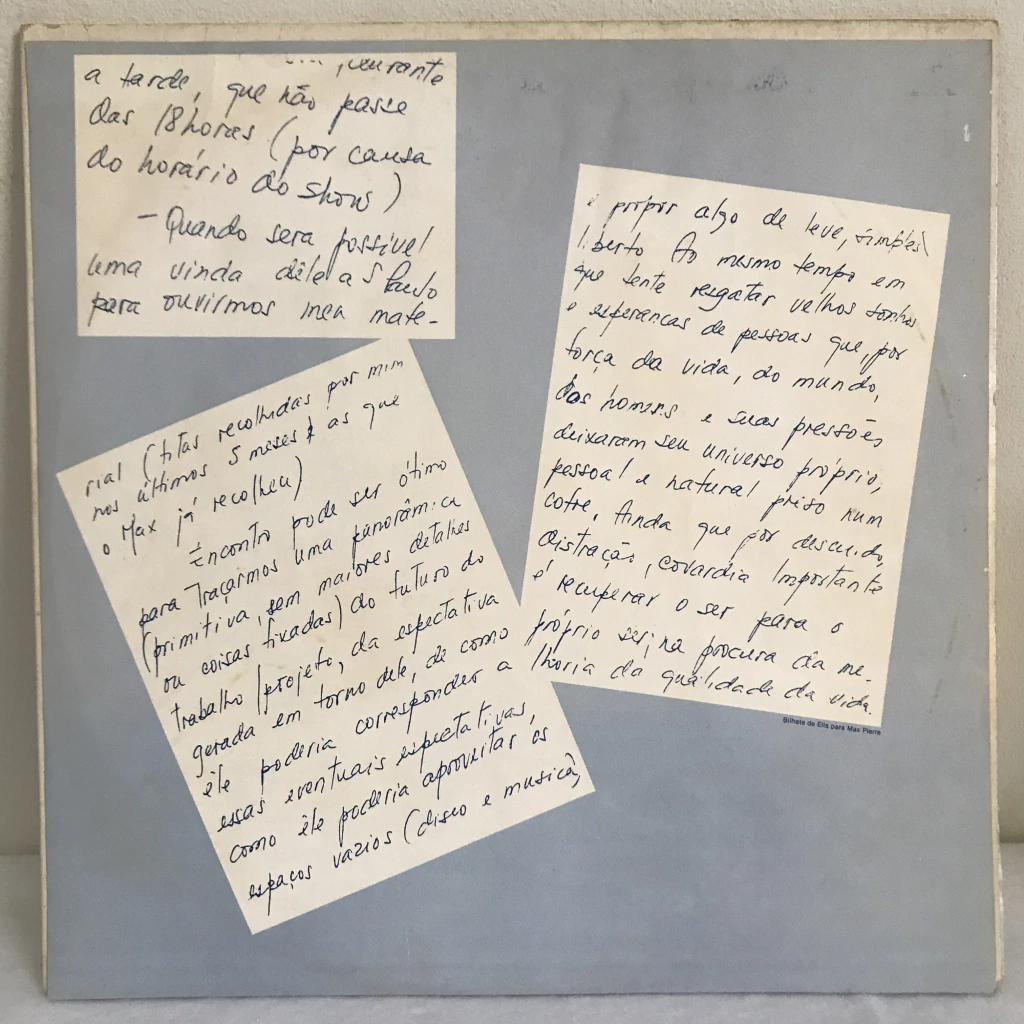 durante
a tarde, que não passe
das 18 horas (por causa
do horário do show)
- Quando sera possivel
uma vinda dêle a S Paulo
para ouvirmos meu mate-
rial (fitas recolhidas por mim
nos últimos 5 meses & as que
o Max já recolheu)
Encontro pode ser ótimo
para traçarmos uma panorâmica
(primitiva, sem maiores detalhes
ou coisas fixadas) do futuro do
trabalho/projeto, da espectativa
gerada em torno dele, de como
êle poderia corresponder a
essas eventuais espectativas,
como êle poderia aproveitar os
espaços vazios (disco e musica)
é propor algo de leve, simples
liberto Ao mesmo tempo em
que tente resgatar velhos sonhos
e esperancas de pessoas que, por
força da vida, do mundo,
dos homens e suas pressões
deixaram seu universo próprio,
pessoal e natural prêso num
cofre. Ainda que por descuido,
distração, covardia Importante
é recuperar o ser para o
próprio ser, na procura da me-
lhoria da qualidade da vida.
Bilhete de Elis para Max Pierre